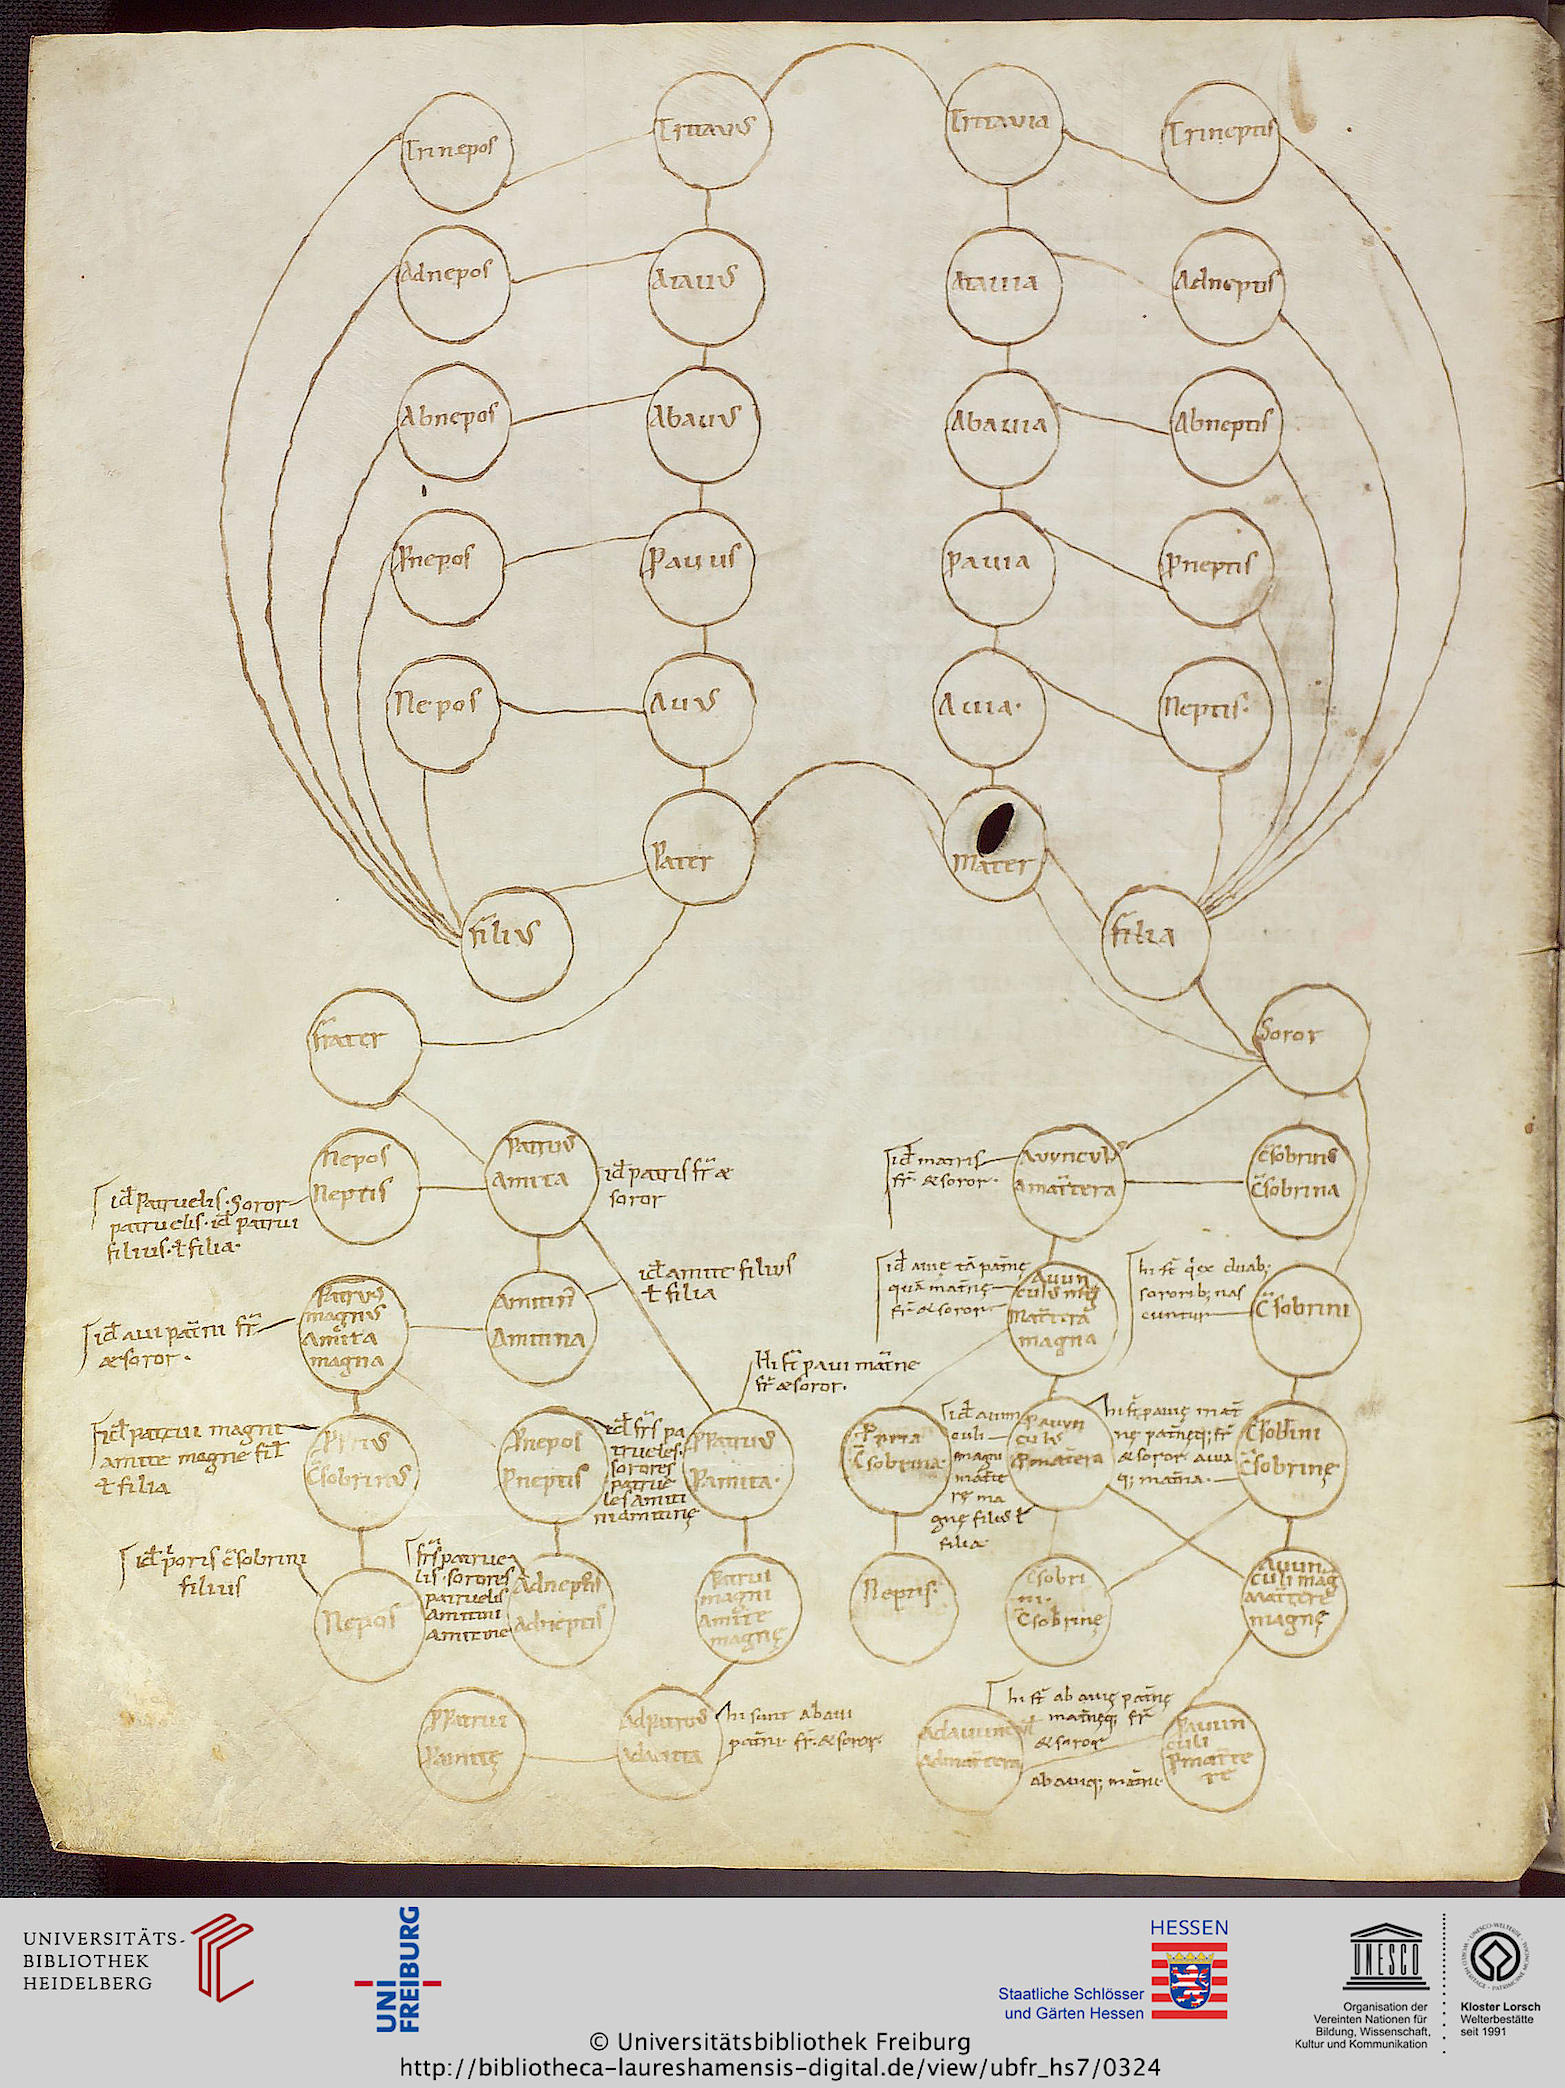 Trinepos
Tritavus
Tritavia
Trineptis
Adnepos
Atauus
Atauia
Adneptis
Abnepos
Abauus
Abauia
Abneptis
Pnepos
Pauus
Pauia
Pneptis
Nepos
Auus
Auia·
Neptis·
Pater
Mater
filius
filia
frater
Soror
Nepos
Neptis
Patruus
Amita
id patris fr̄ æ
soror
id matris
fr̄ æ soror·
Auunculus
Amat̄tera
C̄sobrinus
C̄sobrina
id patruelis· Soror
patruelis· id patrui
filius· ł filia·
id amite filius
ł filia
Patruus
magnus
Amita
magna
id aui pat̄ni fr̄
æ soror·
Amitin̄
Amitina
id auię tā pat̄nę
quā mat̄nę
fr̄ æ soror
Auun
culus mag
Mat̄tera
magna
hi st̄ q̇ ex duab;
sororib; nas
cuntur
C̄sobrini
Hi st̄ paui mat̄ne
fr̄ æ soror·
id patrui magni
amite magne fil
ł filia
C̄sobrinus
Pnepos
Pneptis
id fr̄s pa
trueles·
sorores
patrue
les amiti
ni amitinę
Ppatruus
Pamita·
C̄sobrina·
id auun
culi
magni
mat̄te
rę ma
gnę filius ł
filia·
Pauun
culus
Pmat̄tera
hi st̄ pauię mat̄
nę pat̄nęq; fr̄
æ soror auia
q; mat̄na·
C̄sobrini
C̄sobrinę
id p̄oris c̄sobrini
filius
Nepos
fr̄s patrue
lis· sorores
patruelis
amitini
amitine
Adneptis
Patrui
magni
amite
magnę
Neptis·
C̄sobri
ni·
C̄sobrinę
Auun
culi mag
Mat̄tere
magnę
Ppatrui
Pamitę
Adpatruus
Adamita
hi sunt abaui
pat̄ni· fr̄· æ soror·
Adauunculus
Admat̄tera
hi st̄ abauię pat̄nę
mat̄nęq; fr̄
æ soror
abauiq; mat̄ni·
Pauun
culi
Pmat̄te
re
UNIVERSITÄTS-
BIBLIOTHEK
HEIDELBERG
UNI
FREIBURG
HESSEN
Staatliche Schlösser
und Gärten Hessen
UNESCO
Organisation der
Vereinten Nationen für
Bildung, Wissenschaft,
Kultur und Kommunikation
Kloster Lorsch
Welterbestätte
seit 1991
© Universitätsbibliothek Freiburg
http://bibliotheca-laureshamensis-digital.de/view/ubfr_hs7/0324